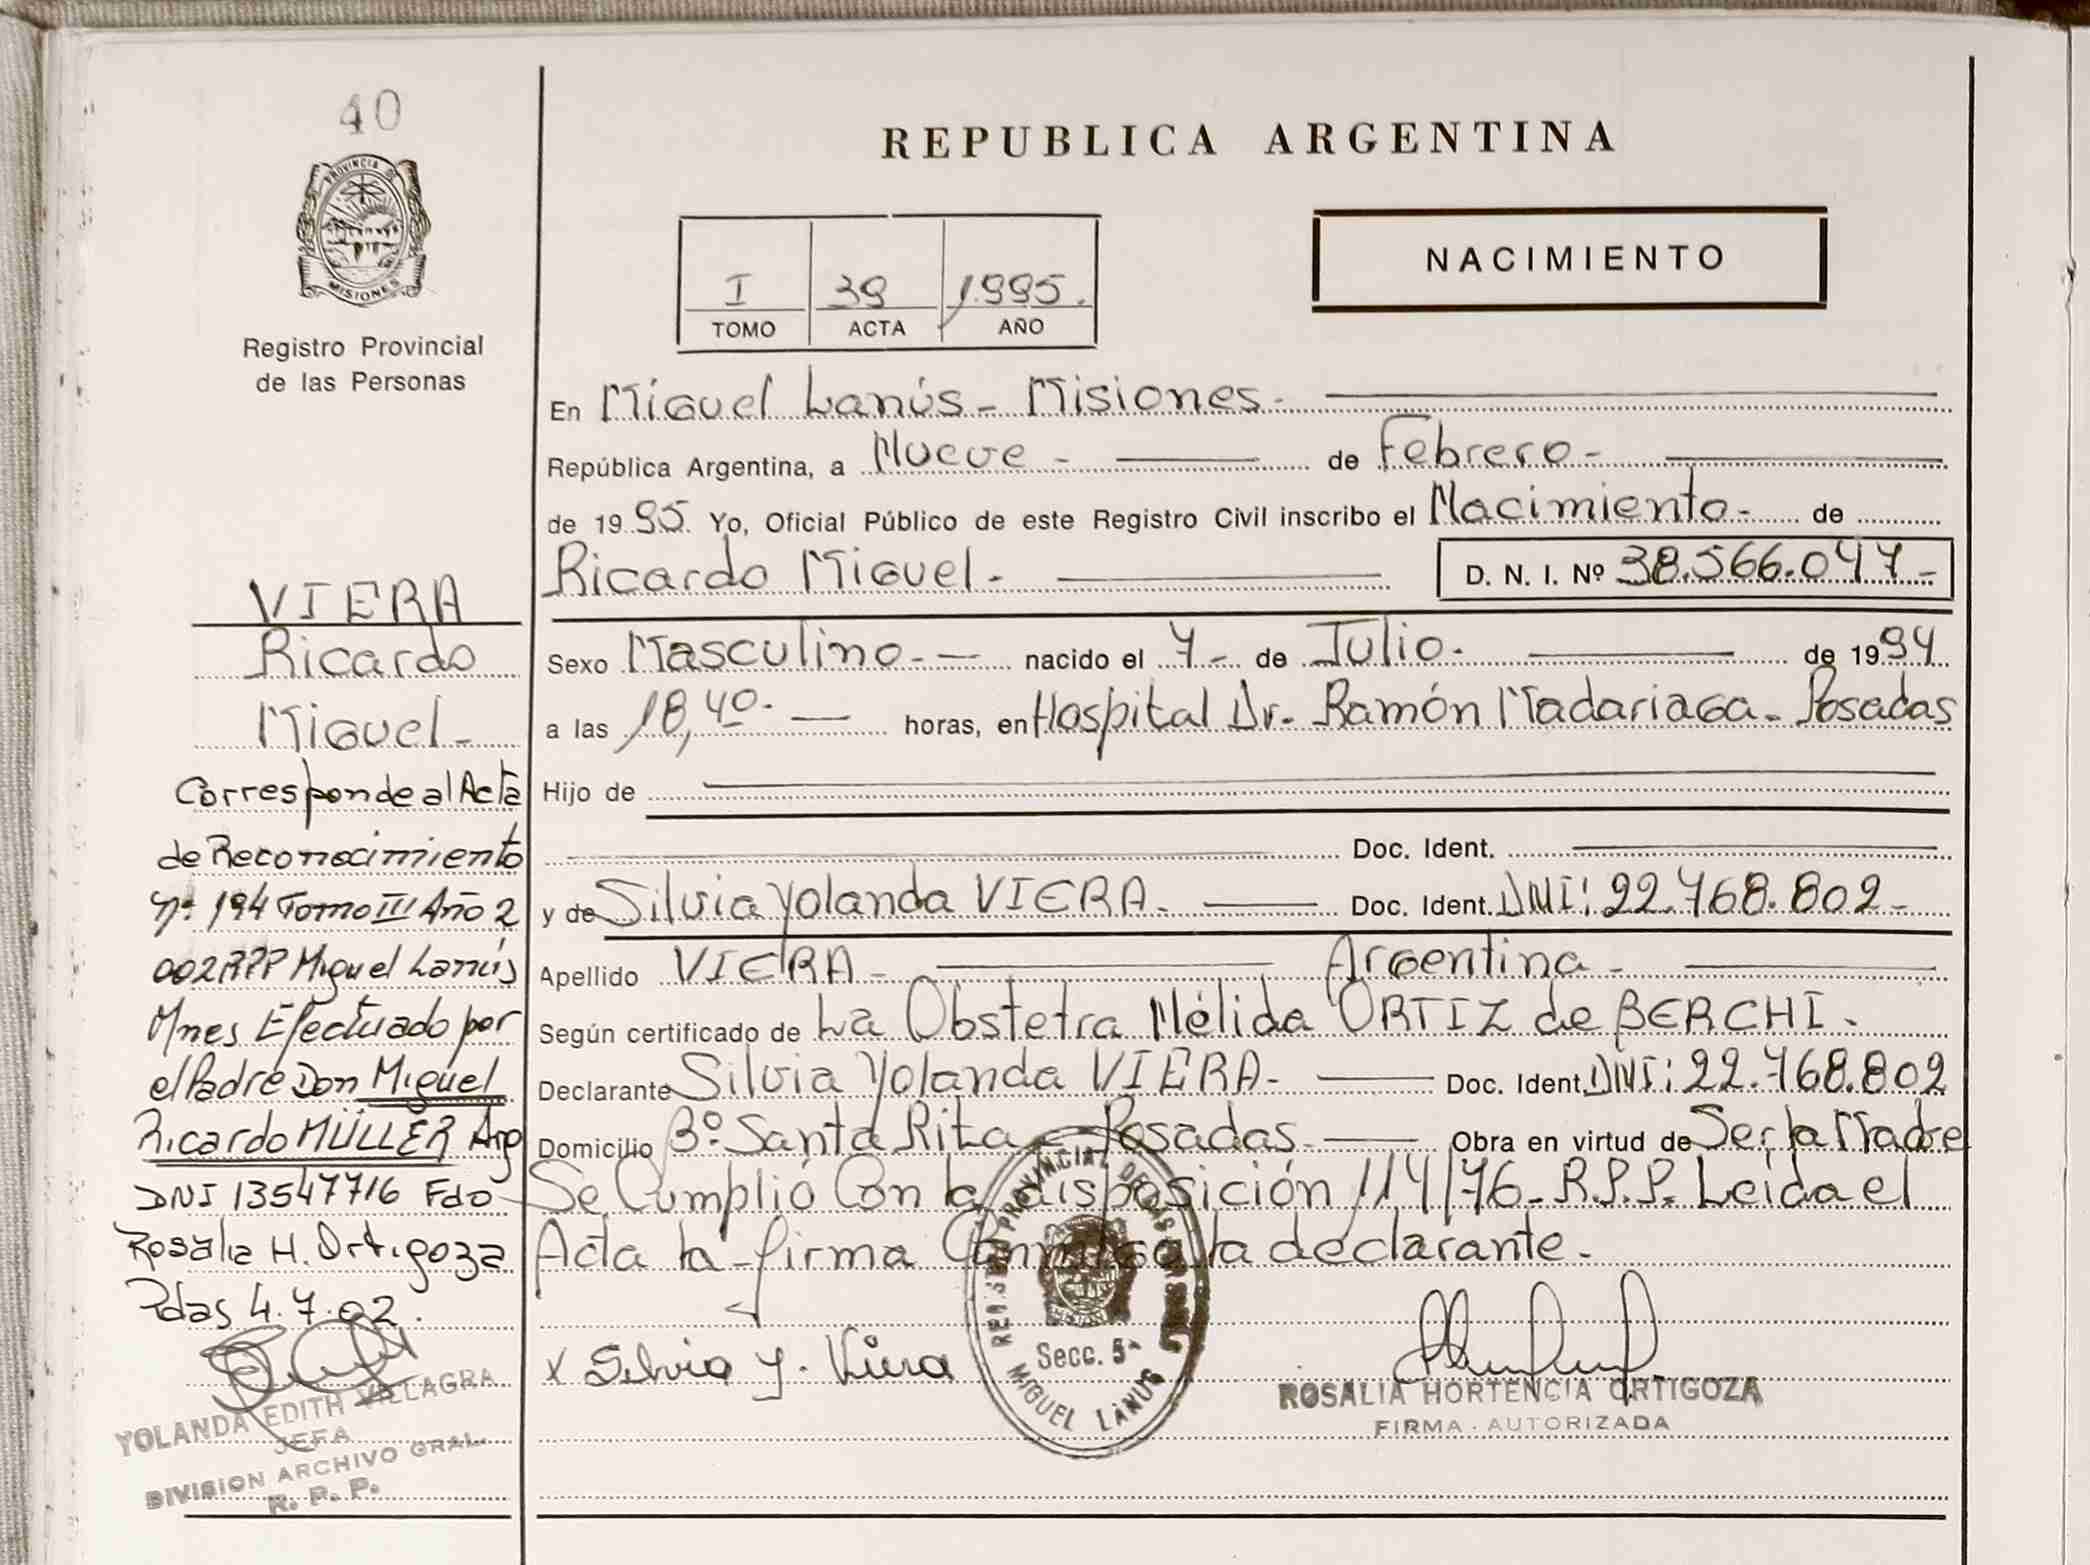 40
PROVINCIA DE
MISIONES
Registro Provincial
de las Personas
REPUBLICA ARGENTINA
I 39 1995.
TOMO ACTA AÑO
NACIMIENTO
En Miguel Lanús - Misiones.
República Argentina, a Nueve - de Febrero -
de 1995. Yo, Oficial Público de este Registro Civil inscribo el Nacimiento - de
Ricardo Miguel - D. N. I. Nº 38.566.047-
Sexo Masculino - nacido el 7 - de Julio. de 1994
a las 18,40. horas, en Hospital Dr. Ramón Madariaga - Posadas
Hijo de
Doc. Ident.
y de Silvia Yolanda VIERA. Doc. Ident. DNI: 22.768.802-
Apellido VIERA - Argentina -
Según certificado de La Obstetra Nélida ORTIZ de BERCHI.
Declarante Silvia Yolanda VIERA - Doc. Ident. DNI: 22.768.802
Domicilio Bº. Santa Rita - Posadas. Obra en virtud de Ser la Madre
Se Cumplió Con la disposición 114/76 - R.P.P. Leída el
Acta la firma Conmigo la declarante.
x Silvia Y. Viera
REGISTRO PROVINCIAL DE
Secc. 5ª
MIGUEL LANUS
ROSALIA HORTENCIA ORTIGOZA
FIRMA - AUTORIZADA
VIERA
Ricardo
Miguel -
Corresponde al Acta
de Reconocimiento
Nº 194 Tomo III Año 2
002 RPP Miguel Lanús
Mnes Efectuado por
el Padre Don Miguel
Ricardo MÜLLER Arg
DNI 13547716 Fdo
Rosalia H. Ortigoza
Pdas 4.7.02.
YOLANDA EDITH VILLAGRA
JEFA
DIVISION ARCHIVO GRAL.
R. P. P.